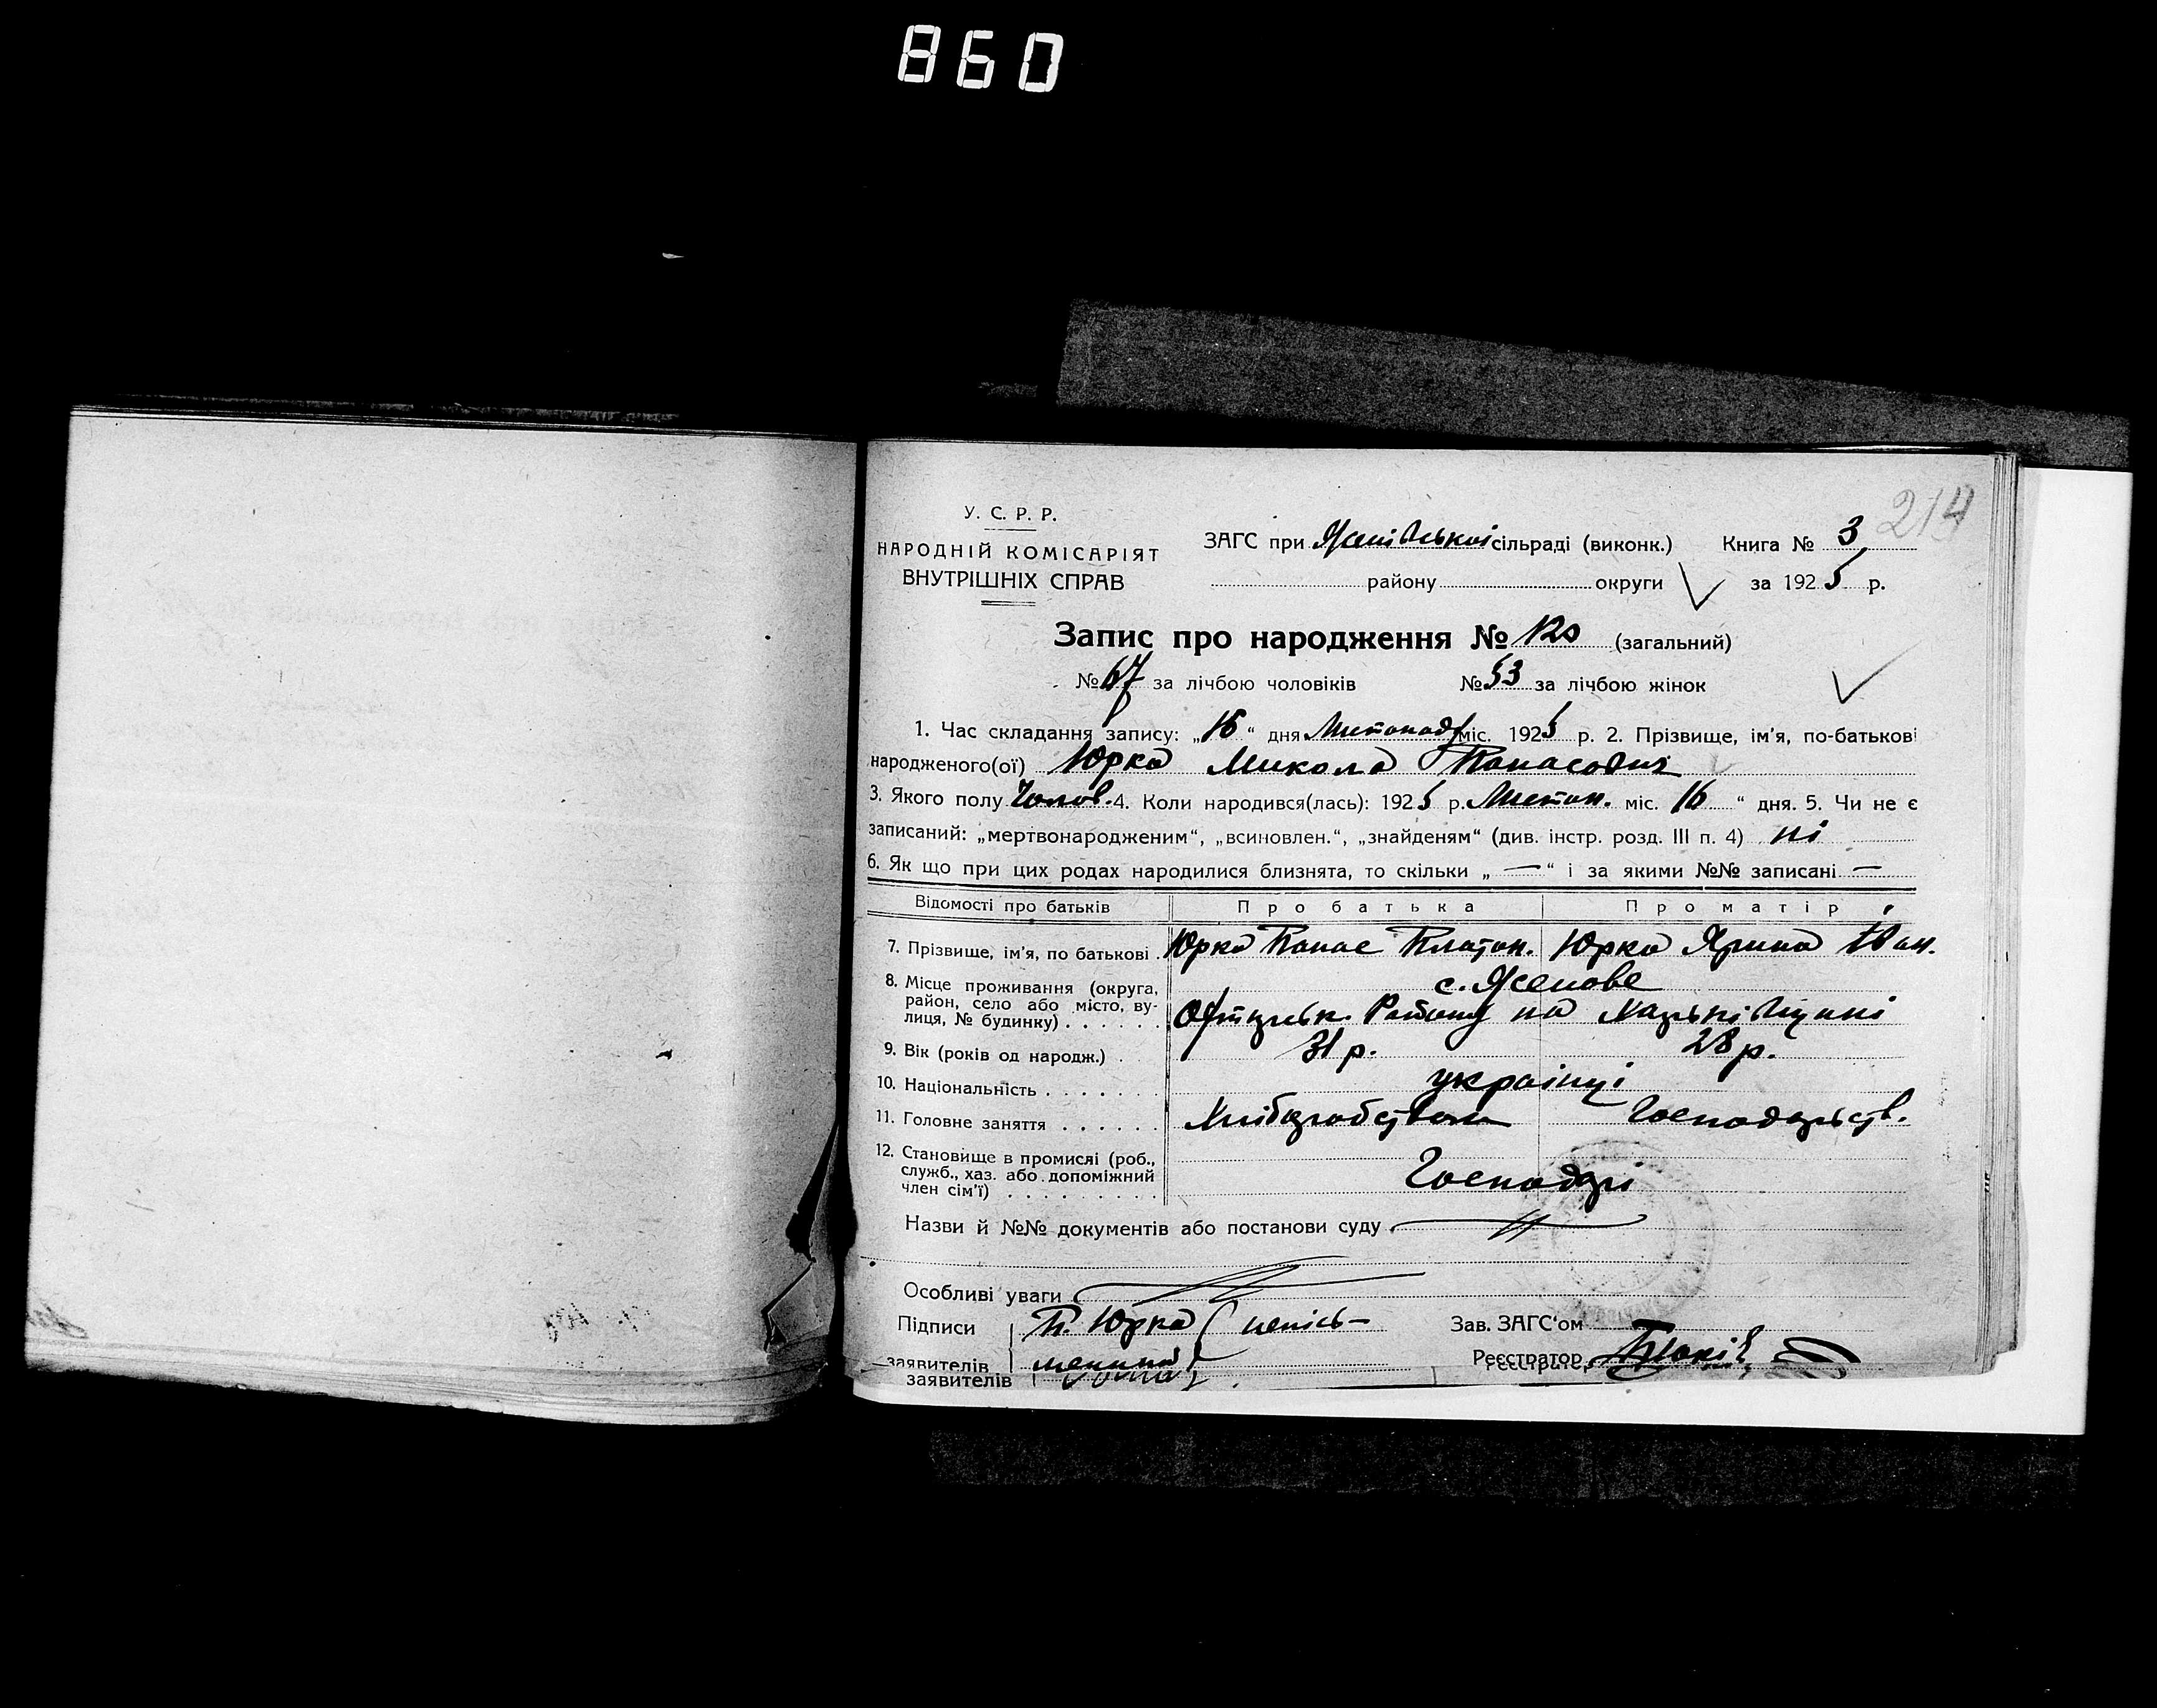 860
214
У. С. Р. Р.
НАРОДНІЙ КОМІСАРІЯТ
ВНУТРІШНІХ СПРАВ
ЗАГС при Ясенівській сільраді (виконк.) Книга № 3
району округи за 1925 р.
Запис про народження № 120 (загальний)
№ 67 за лічбою чоловіків № 53 за лічбою жінок
1. Час складання запису: „16“ дня Листопад міс. 1925 р. 2. Прізвище, ім'я, по-батькові
народженого(ої) Юрко Микола Панасович
3. Якого полу Чолов. 4. Коли народився(лась): 1925 р. Листоп. міс. 16 “ дня. 5. Чи не є
записаний: „мертвонародженим“, „всиновлен.“, „знайденям“ (див. інстр. розд. III п. 4) ні
6. Як що при цих родах народилися близнята, то скільки „ — “ і за якими №№ записані —
Відомості про батьків Про батька Про матір
7. Прізвище, ім'я, по батькові . Юрко Панас Платон. Юрко Ярина Іван.
8. Місце проживання (округа, с. Ясенове
район, село або місто, ву-
лиця, № будинку) . . . . . . Району на
9. Вік (років од народж.) . 31 р. 28 р.
10. Національність . . . . . . . українці
11. Головне заняття . . . . . . Хліборобством Господарств.
12. Становище в промислі (роб.,
служб., хаз. або допоміжний Господарі
член сім'ї) . . . . . . . . .
Назви й №№ документів або постанови суду
Особливі уваги
Підписи П. Юрко непись- Зав. ЗАГС'ом
заявителів менний Реєстратор
заявителів